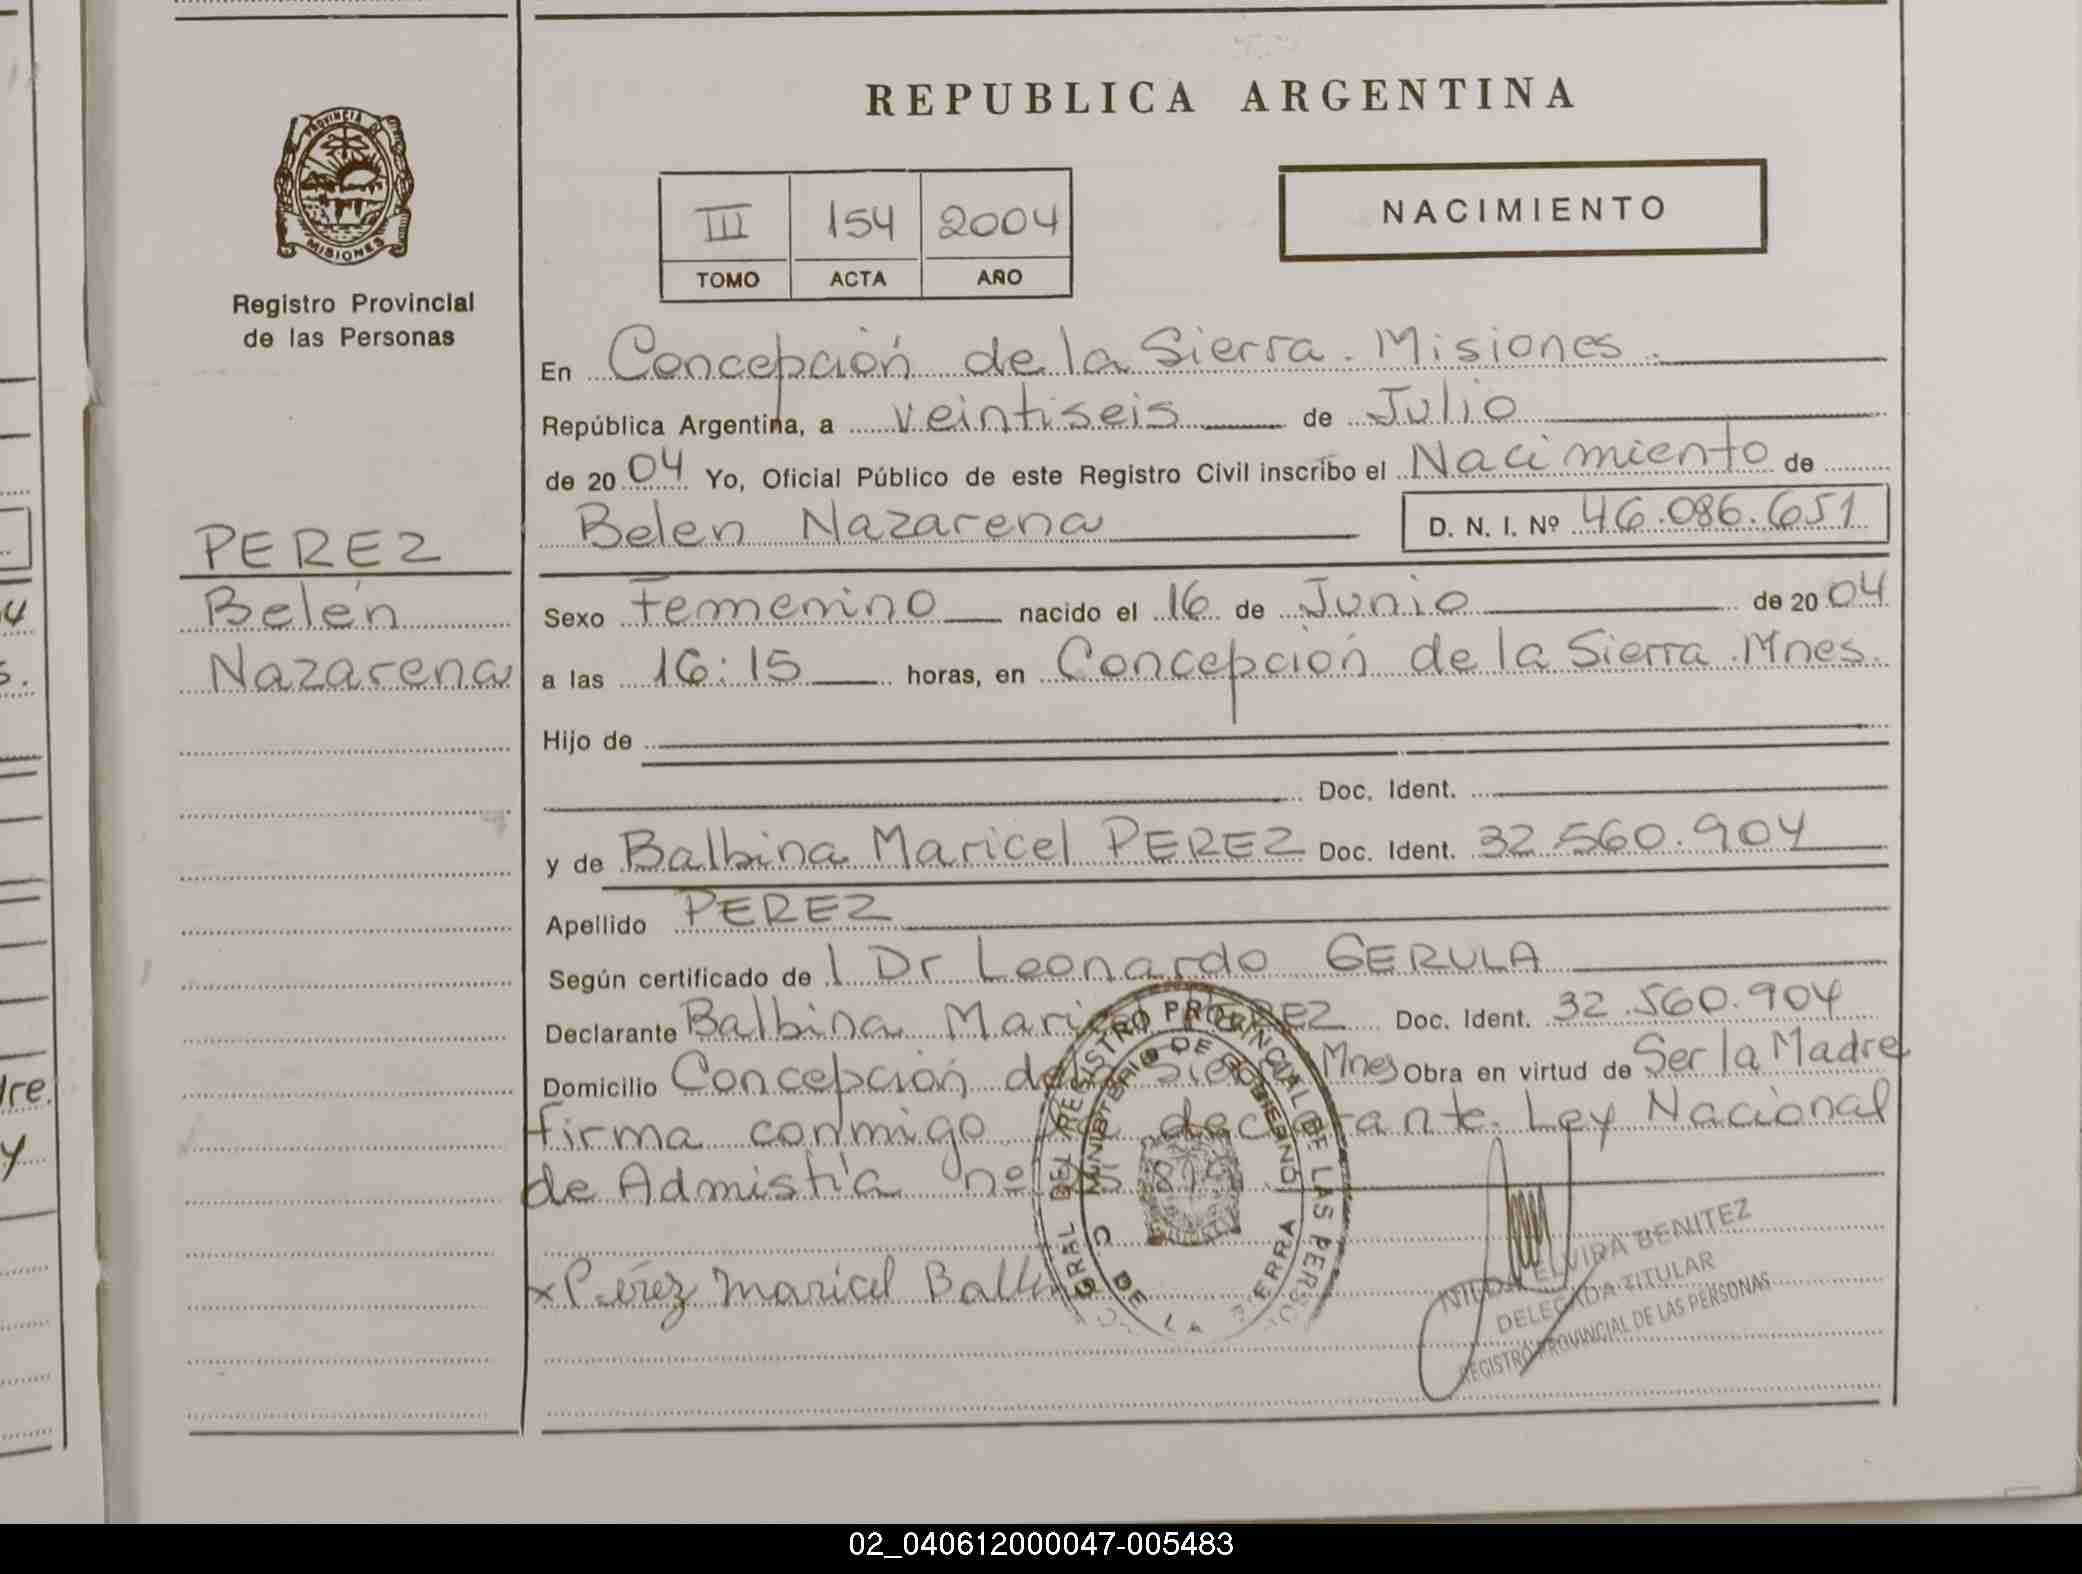 REPUBLICA ARGENTINA
PROVINCIA DE
MISIONES
Registro Provincial
de las Personas
III 154 2004
TOMO ACTA AÑO
NACIMIENTO
En Concepción de la Sierra. Misiones.
República Argentina, a veintiseis de Julio
de 2004 Yo, Oficial Público de este Registro Civil inscribo el Nacimiento de
Belen Nazarena D. N. I. Nº 46.086.651
PEREZ
Belén
Nazarena
Sexo Femenino nacido el 16 de Junio de 2004
a las 16:15 horas, en Concepción de la Sierra. Mnes.
Hijo de
Doc. Ident.
y de Balbina Maricel PEREZ Doc. Ident. 32.560.904
Apellido PEREZ
Según certificado de l Dr Leonardo GERULA
Declarante Balbina Maricel PEREZ Doc. Ident. 32.560.904
Domicilio Concepción de la Sierra Mnes Obra en virtud de Ser la Madre
firma conmigo la declarante. Ley Nacional
de Admistía nº 25.819
x Pérez Maricel
GRAL DEL REGISTRO PROVINCIAL DE LAS PERSONAS
MINISTERIO DE GOBIERNO
C. DE LA SIERRA
NILDA ELVIRA BENITEZ
DELEGADA TITULAR
REGISTRO PROVINCIAL DE LAS PERSONAS
02_040612000047-005483